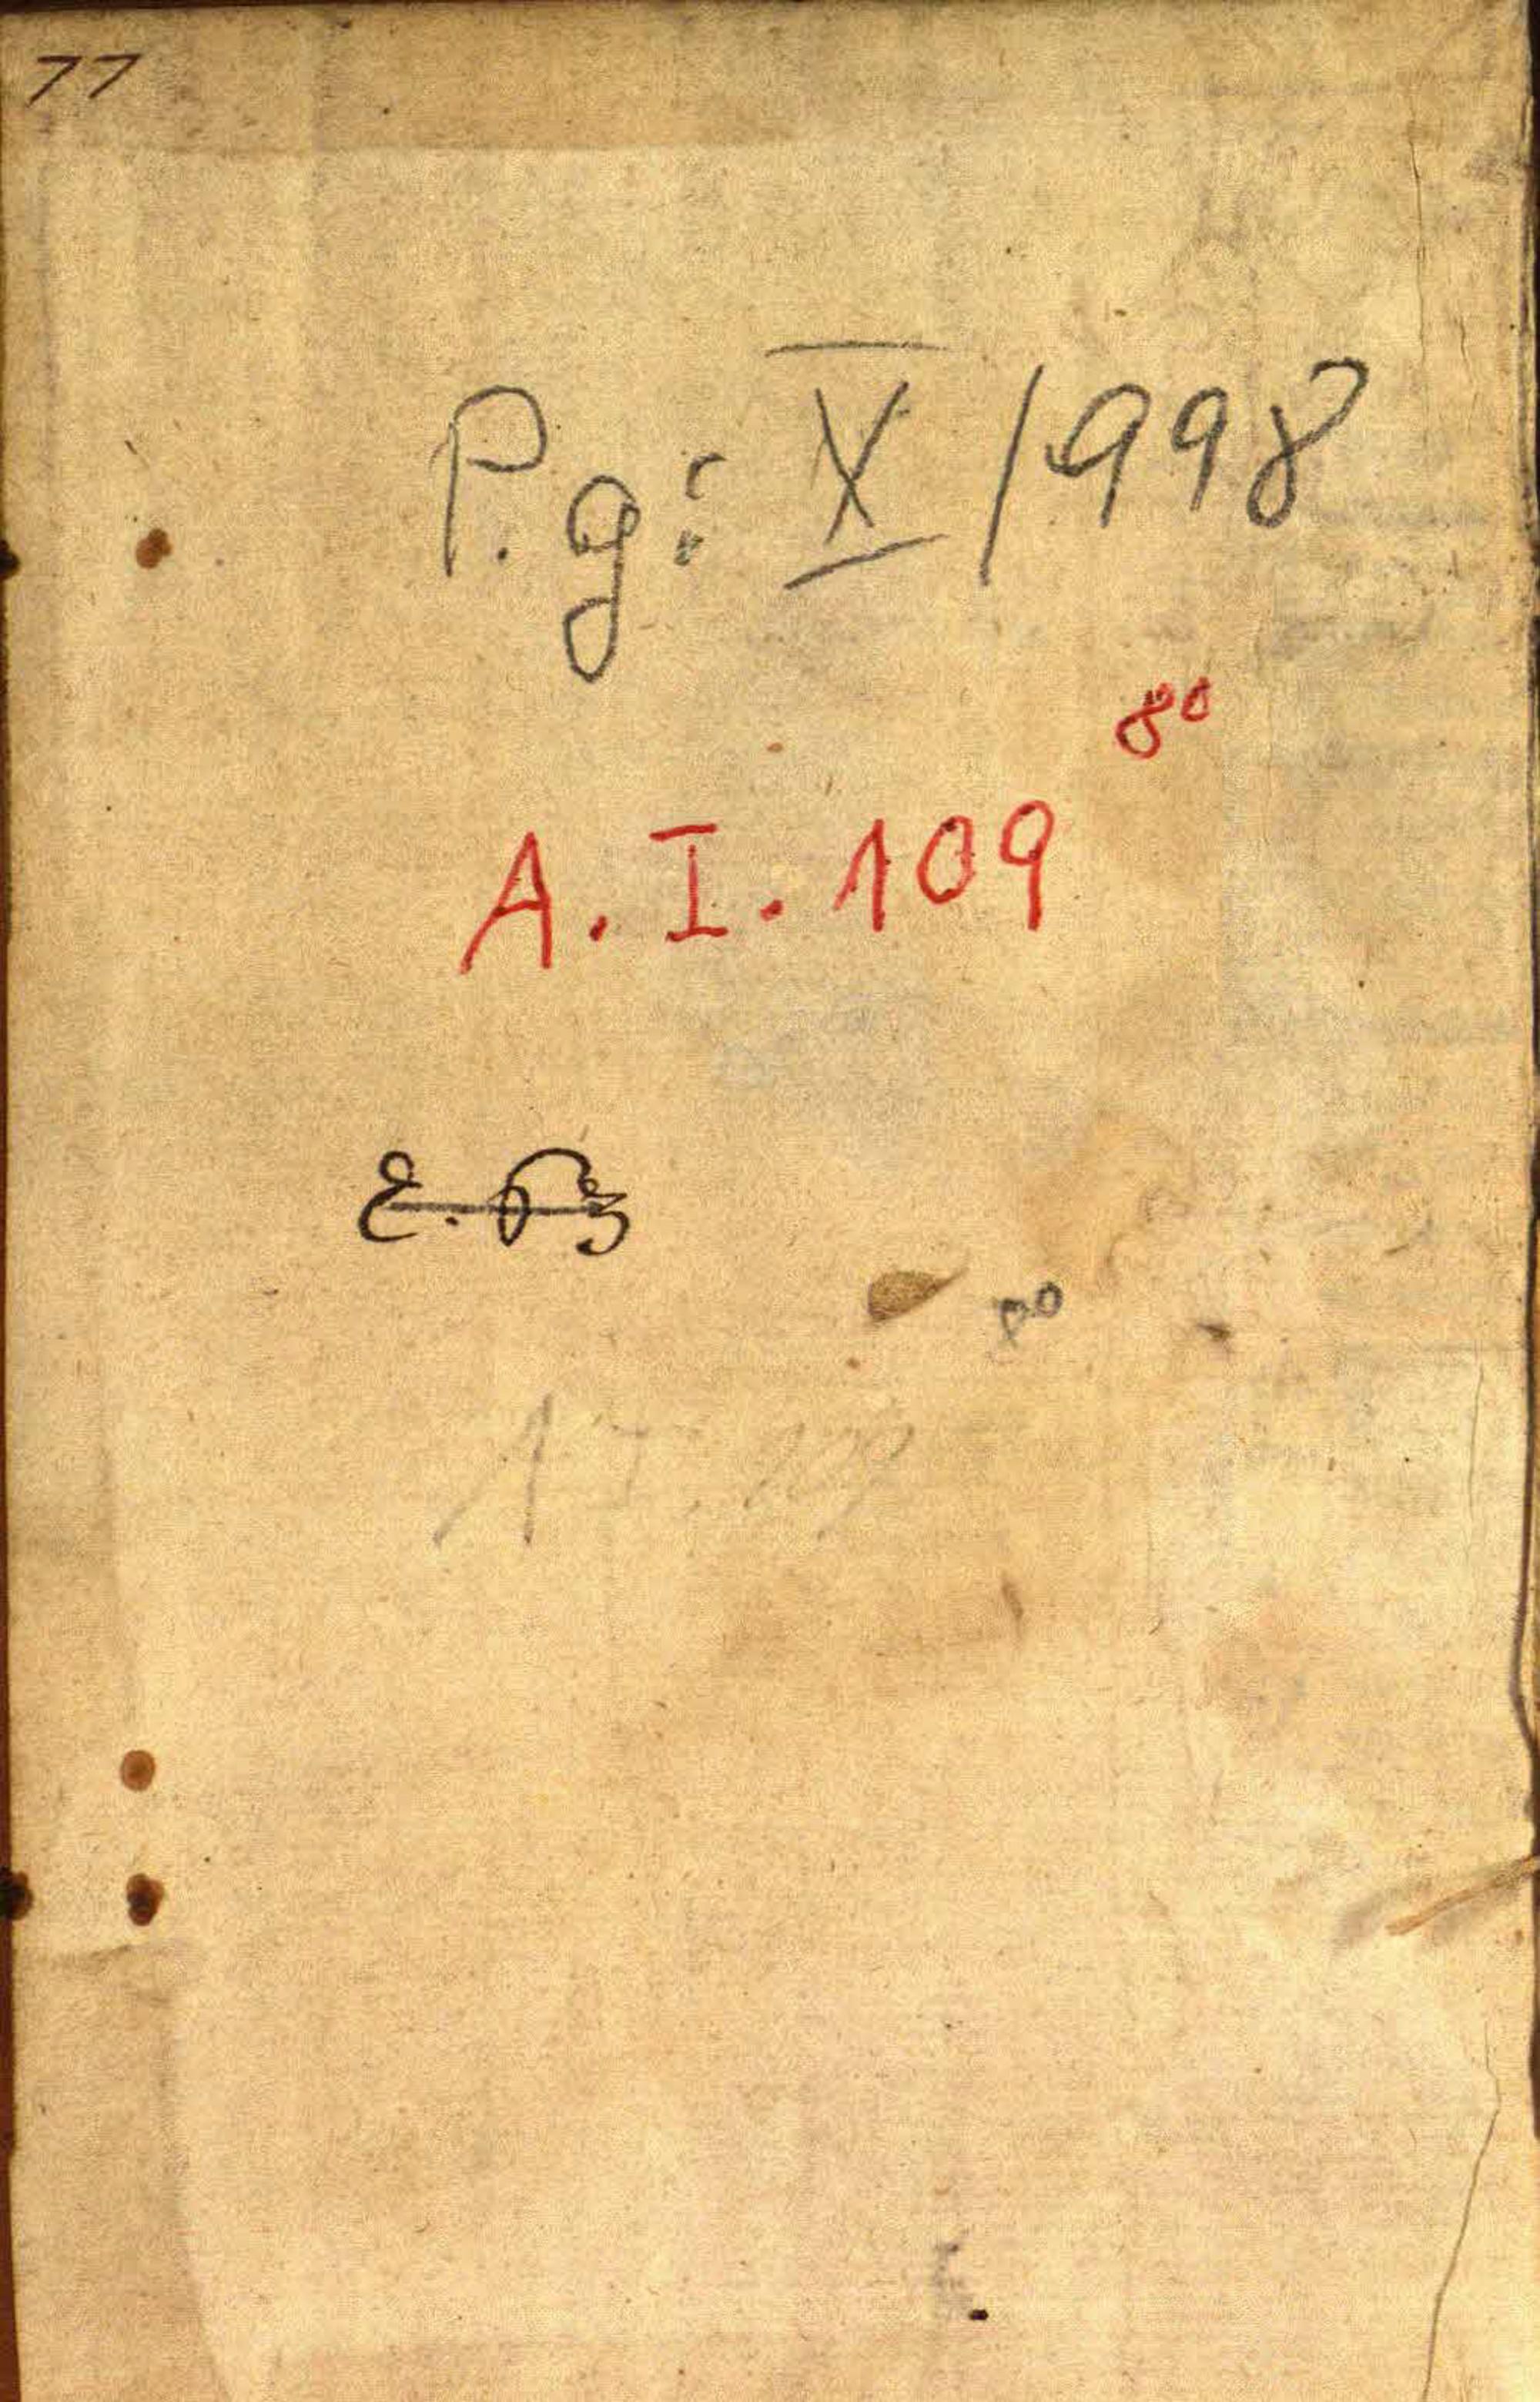 77
P.g: X / 998
8°
A. I. 109
8°
A. I. 109